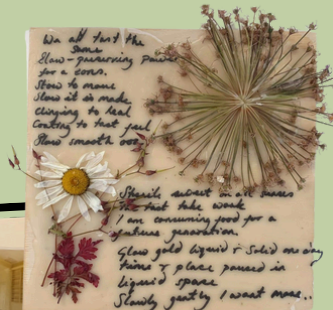 We all tast the
same
Slow - preserving power
for a eons.
Slow to move
Slow it is made
Clinging to leaf
Coating to tast feel
Slow smooth ooz
Sticile sweet on all senses
the tast take work
I am consuming food for a
future generation.
Glow gold liquid & Solid me any
time & place paused in
liquid space
Slowly gently I want more..